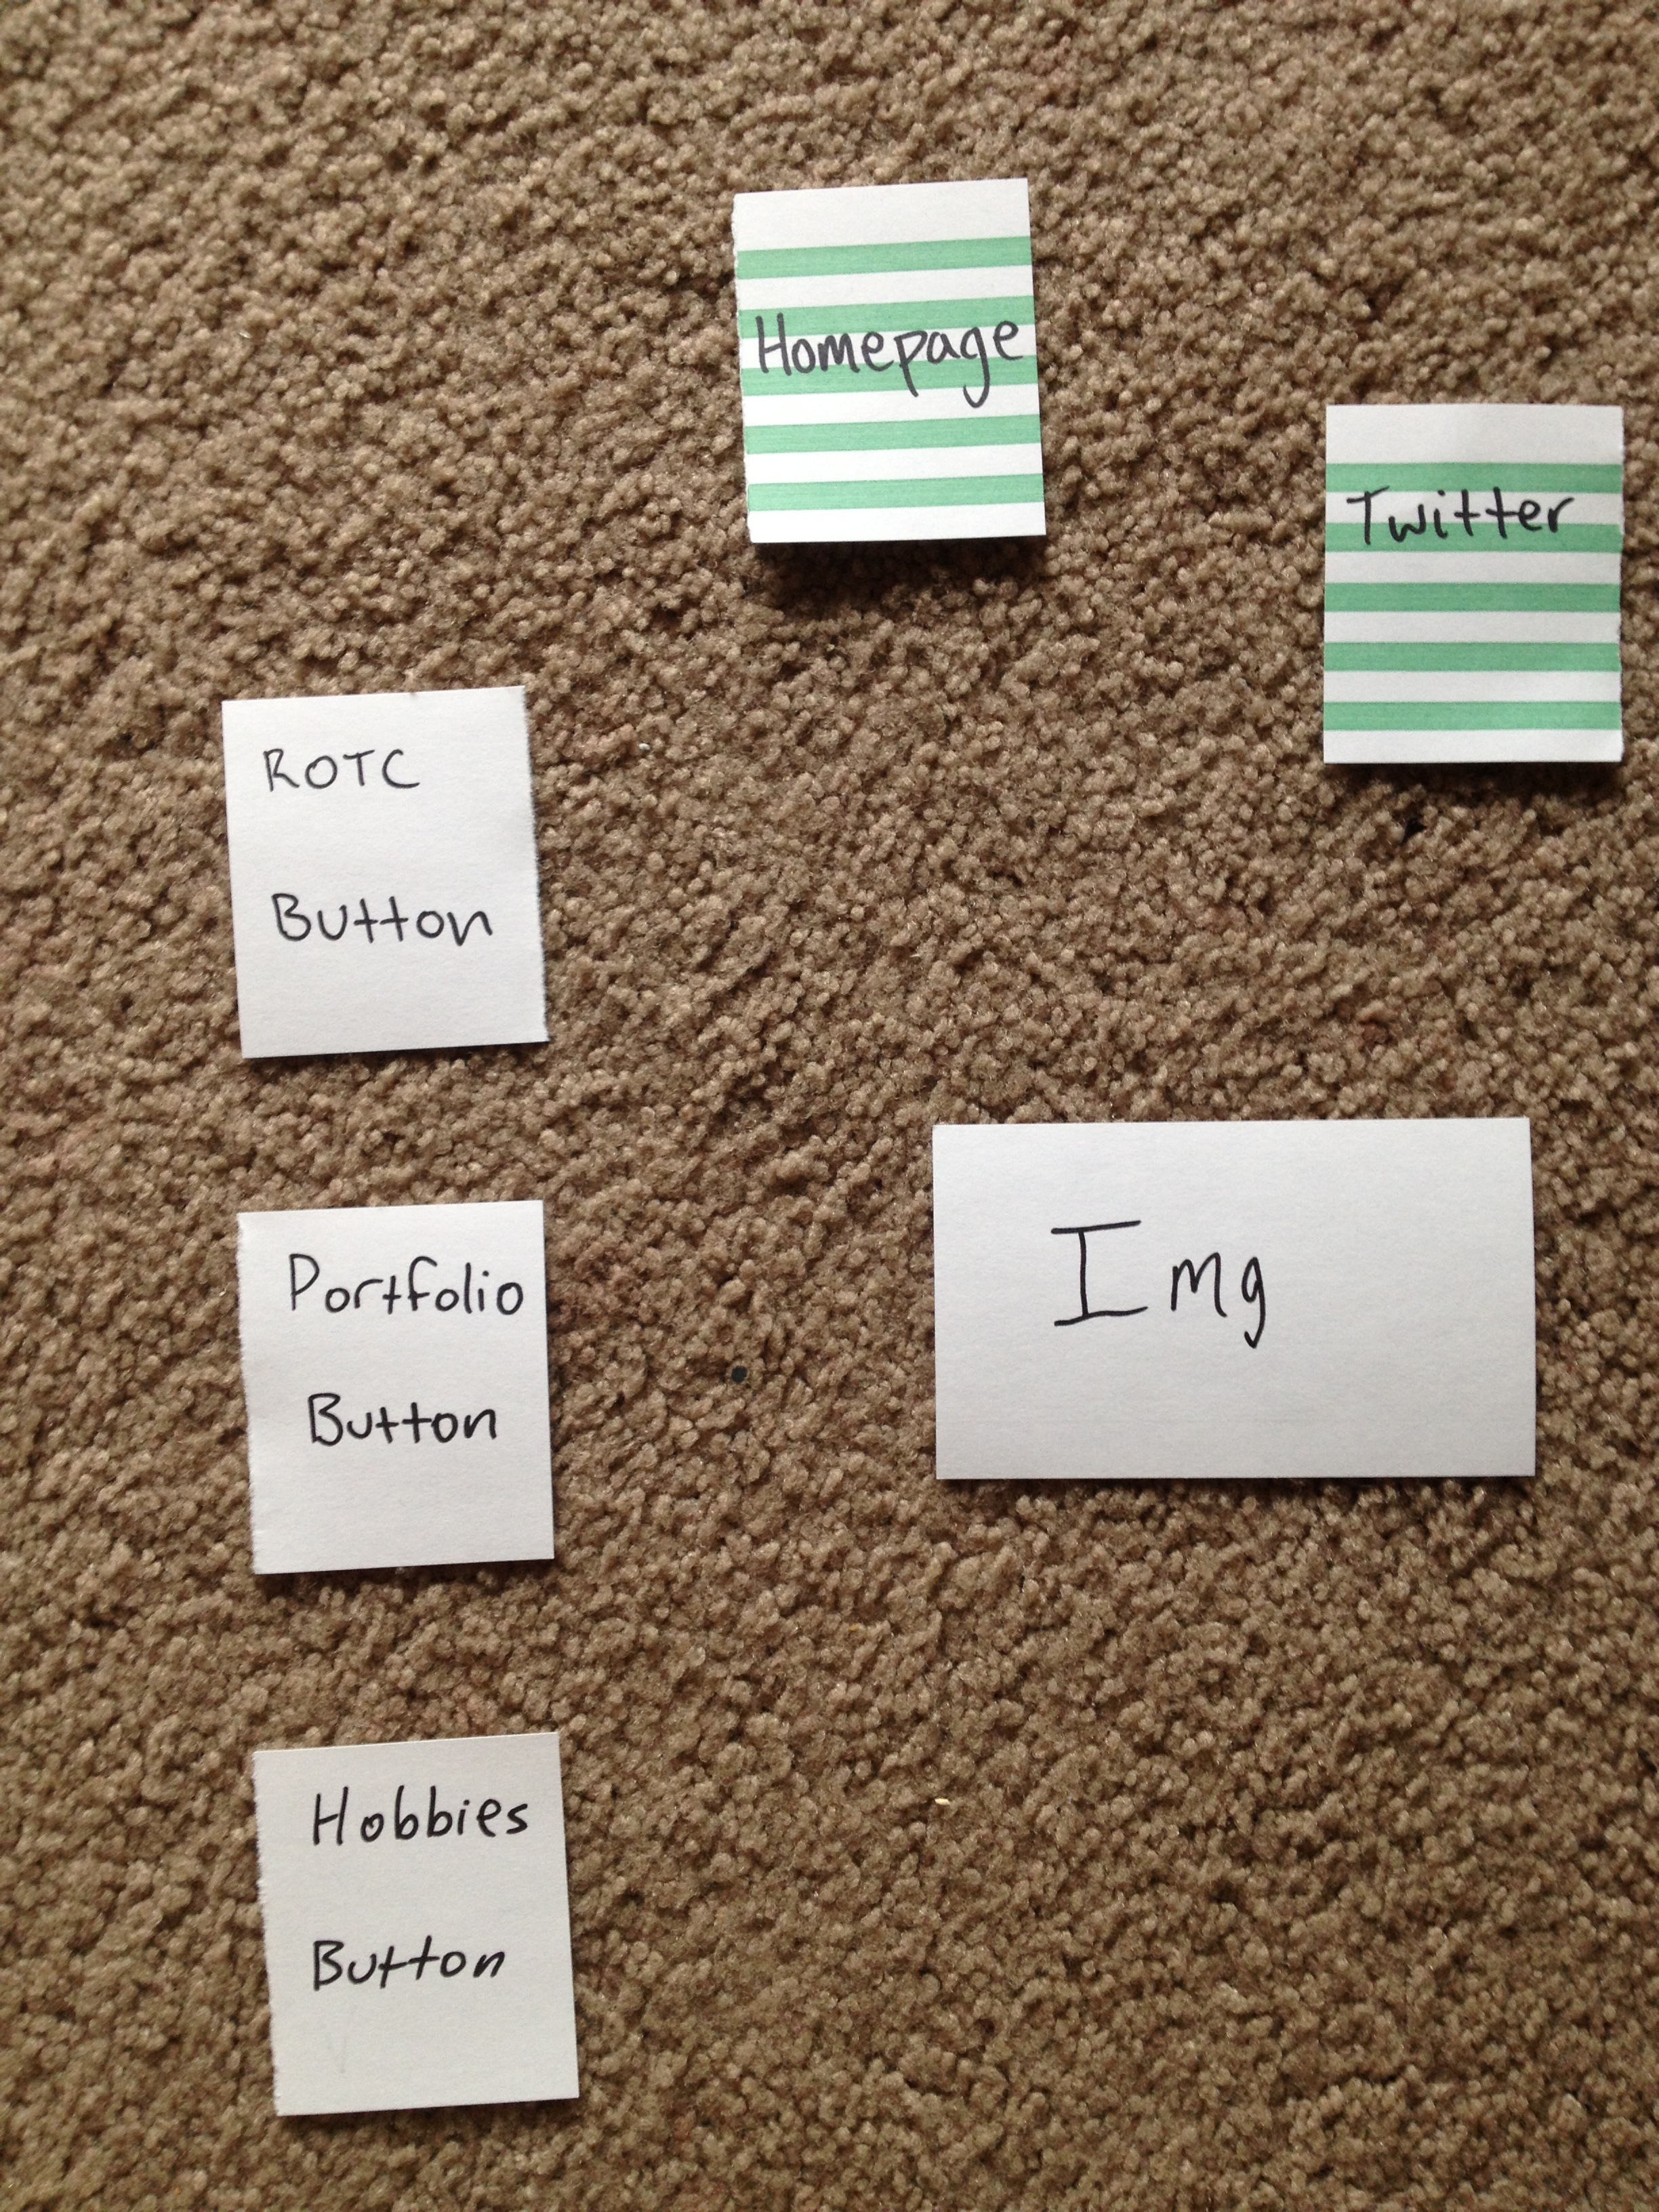 Homepage
Twitter
ROTC
Button
Img
Portfolio
Button
Hobbies
Button